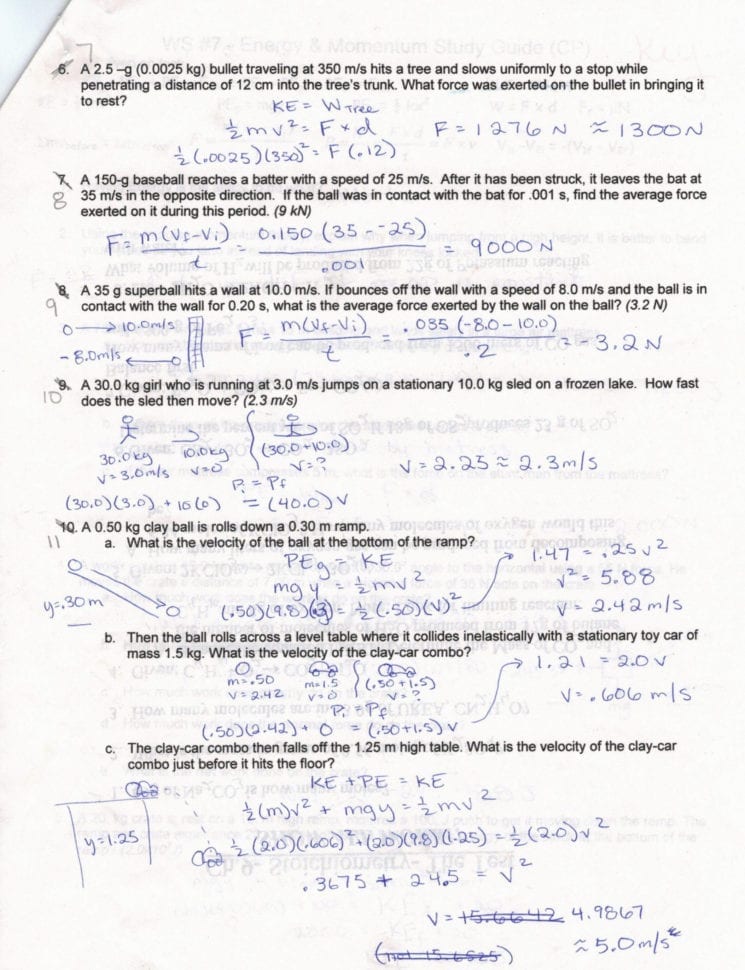 7
WS #7 - Energy & Momentum Study Guide (CP)
6. A 2.5 –g (0.0025 kg) bullet traveling at 350 m/s hits a tree and slows uniformly to a stop while
penetrating a distance of 12 cm into the tree's trunk. What force was exerted on the bullet in bringing it
to rest?
KE = W Tree
½mv² = F × d
F = 1276 N ≈ 1300N
½(.0025)(350)² = F(.12)
7. A 150-g baseball reaches a batter with a speed of 25 m/s. After it has been struck, it leaves the bat at
8
35 m/s in the opposite direction. If the ball was in contact with the bat for .001 s, find the average force
exerted on it during this period. (9 kN)
F = m(Vf-Vi) / t = 0.150(35 - -25) / .001 = 9000 N
8. A 35 g superball hits a wall at 10.0 m/s. If bounces off the wall with a speed of 8.0 m/s and the ball is in
9
contact with the wall for 0.20 s, what is the average force exerted by the wall on the ball? (3.2 N)
10.0m/s
-8.0m/s
F = m(Vf-Vi) / t = .035(-8.0-10.0) / .2 = -3.2 N
9. A 30.0 kg girl who is running at 3.0 m/s jumps on a stationary 10.0 kg sled on a frozen lake. How fast
10
does the sled then move? (2.3 m/s)
30.0kg 10.0kg (30.0+10.0)
v=3.0m/s v=0 v=?
v = 2.25 ≈ 2.3m/s
Pi = Pf
(30.0)(3.0) + 10(0) = (40.0)v
10. A 0.50 kg clay ball is rolls down a 0.30 m ramp.
11
a. What is the velocity of the ball at the bottom of the ramp?
PEg = KE
1.47 = .25v²
mgy = ½mv²
v² = 5.88
y=.30m
(.50)(9.8)(.3) = ½(.50)(v)²
v = 2.42m/s
b. Then the ball rolls across a level table where it collides inelastically with a stationary toy car of
mass 1.5 kg. What is the velocity of the clay-car combo?
m=.50 m=1.5 (.50+1.5)
v=2.42 v=0 v=?
1.21 = 2.0v
v = .606 m/s
Pi = Pf
(.50)(2.42) + 0 = (.50+1.5)v
c. The clay-car combo then falls off the 1.25 m high table. What is the velocity of the clay-car
combo just before it hits the floor?
KE + PE = KE
½(m)v² + mgy = ½mv²
y=1.25
½(2.0)(.606)²+(2.0)(9.8)(1.25) = ½(2.0)v²
.3675 + 24.5 = v²
v = 4.9867
≈ 5.0m/s